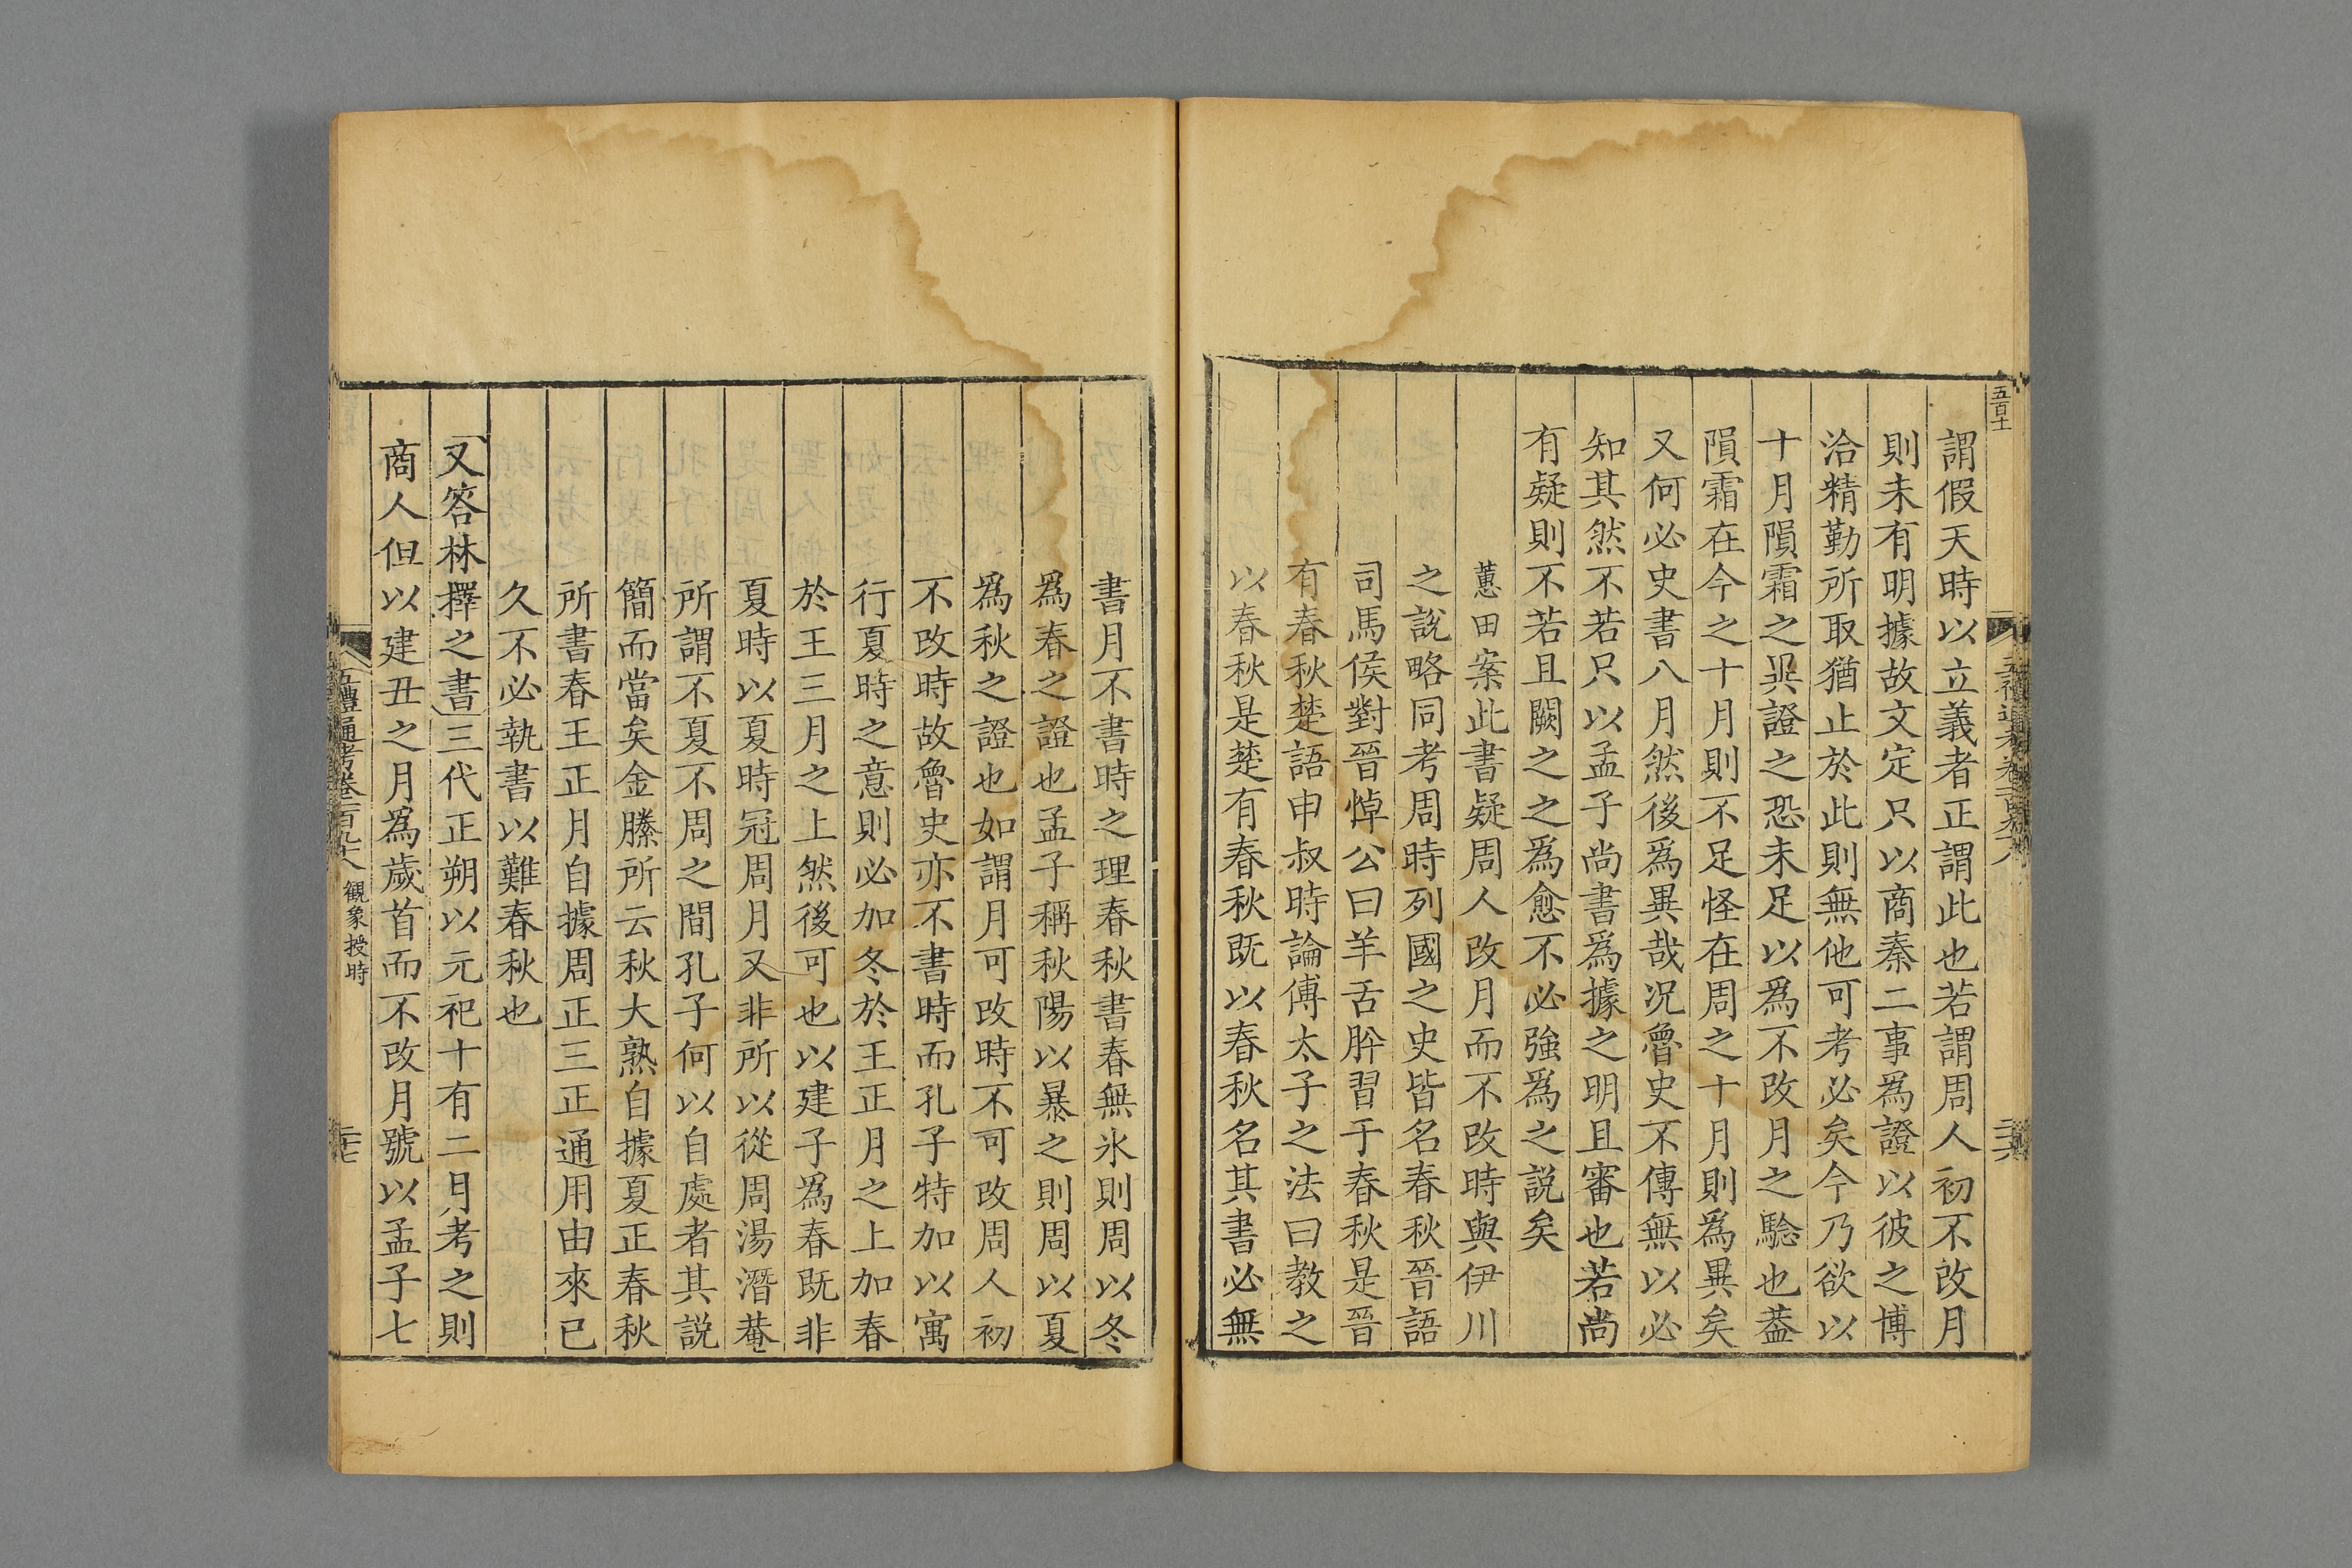 五百十
謂假天時以立義者正謂此也若謂周人初不改月
則未有明據故文定只以商秦二事爲證以彼之博
洽精勤所取猶止於此則無他可考必矣今乃欲以
十月隕霜之異證之恐未足以爲不改月之驗也葢
隕霜在今之十月則不足怪在周之十月則爲異矣
又何必史書八月然後爲異哉况魯史不傳無以必
知其然不若只以孟子尚書爲據之明且審也若尚
有疑則不若且闕之之爲愈不必強爲之說矣
蕙田案此書疑周人改月而不改時與伊川
之說略同考周時列國之史皆名春秋晉語
司馬侯對晉悼公曰羊舌肸習于春秋是晉
有春秋楚語申叔時論傅太子之法曰教之
以春秋是楚有春秋既以春秋名其書必無
書月不書時之理春秋書春無氷則周以冬
爲春之證也孟子稱秋陽以暴之則周以夏
爲秋之證也如謂月可改時不可改周人初
不改時故魯史亦不書時而孔子特加以寓
行夏時之意則必加冬於王正月之上加春
於王三月之上然後可也以建子爲春既非
夏時以夏時冠周月又非所以從周湯潛菴
所謂不夏不周之間孔子何以自處者其說
簡而當矣金縢所云秋大熟自據夏正春秋
所書春王正月自據周正三正通用由來已
久不必執書以難春秋也
又答林擇之書三代正朔以元祀十有二月考之則
商人但以建丑之月爲歲首而不改月號以孟子七
五禮通考卷一百九十八 觀象授時 二十七